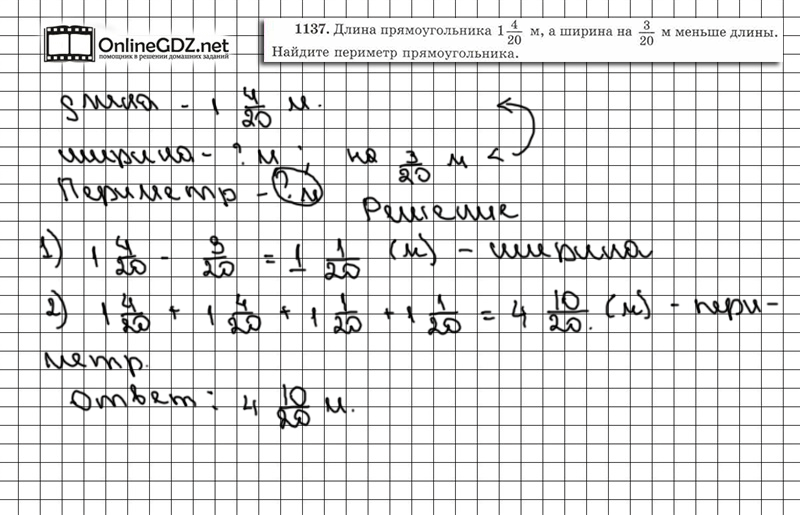 OnlineGDZ.net
помощник в решении домашних заданий
1137. Длина прямоугольника 1 4/20 м, а ширина на 3/20 м меньше длины.
Найдите периметр прямоугольника.
длина - 1 4/20 м.
ширина - ? м ; на 3/20 м <
Периметр - ? м
Решение
1) 1 4/20 - 3/20 = 1 1/20 (м) - ширина
2) 1 4/20 + 1 4/20 + 1 1/20 + 1 1/20 = 4 10/20. (м) - пери-
метр.
Ответ: 4 10/20 м.